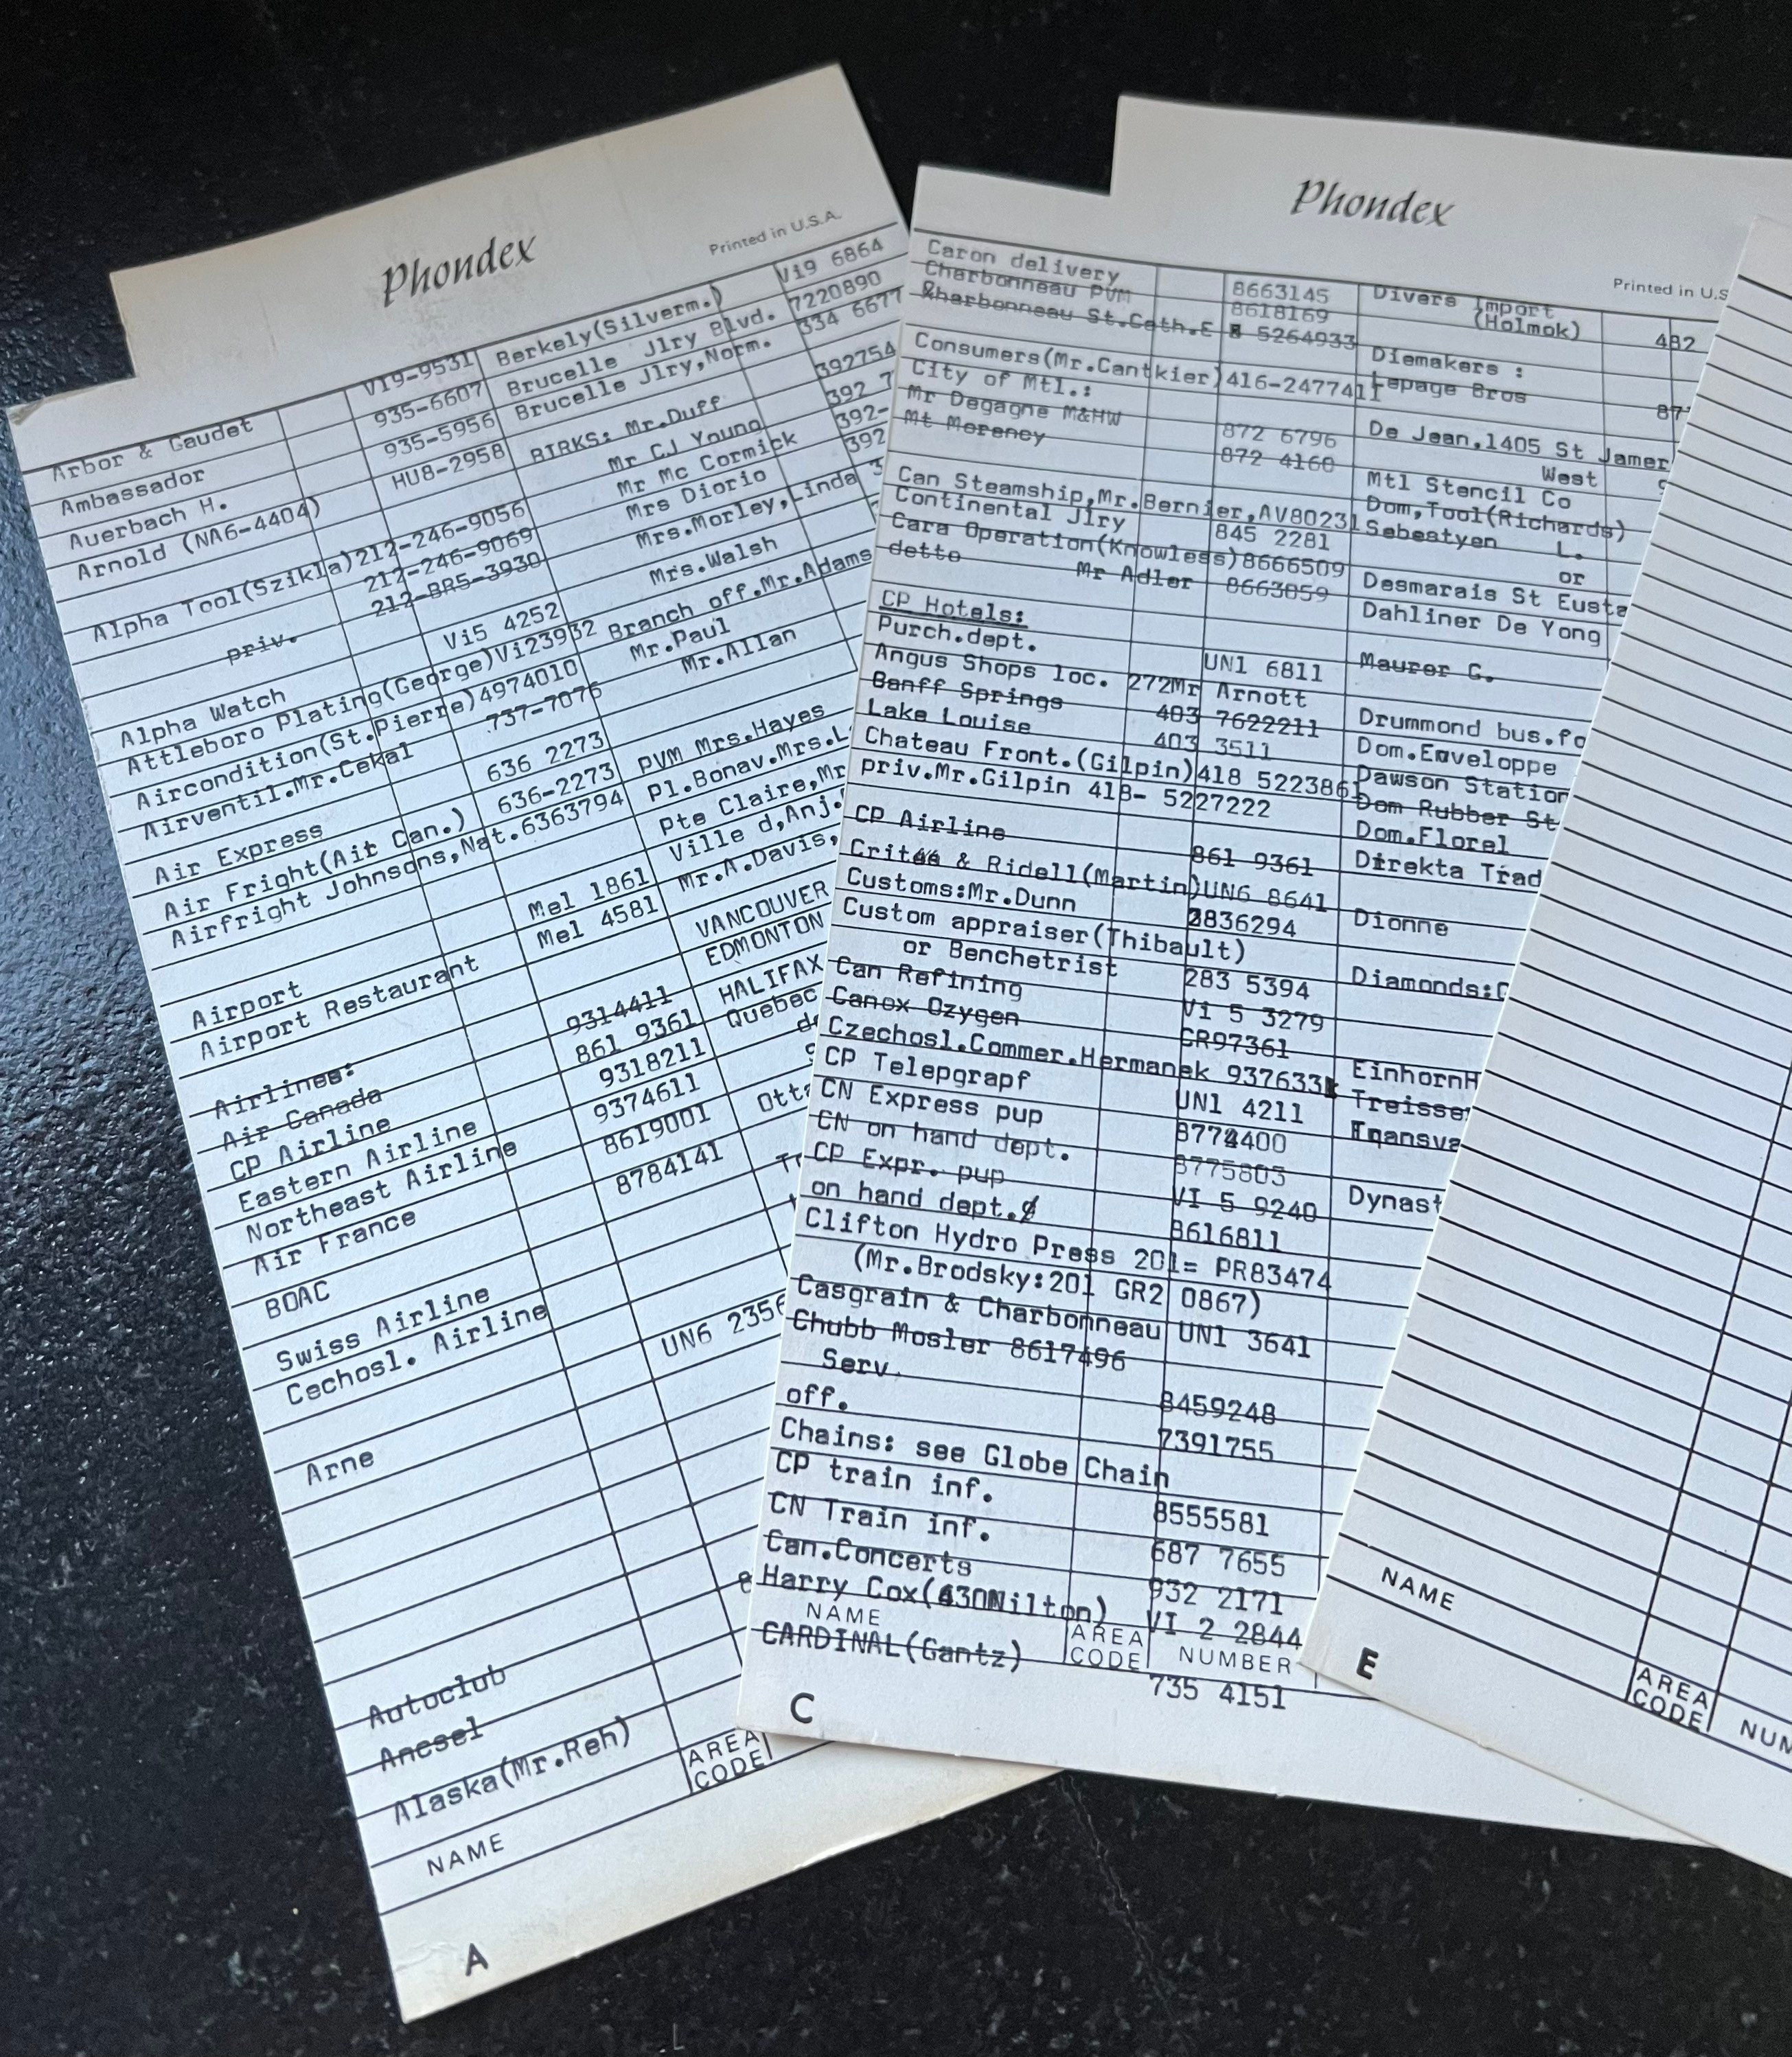 Phondex
Printed in U.S.A.
Arbor & Gaudet VI9-9531
Ambassador 935-6607
Auerbach H. 935-5956
Arnold (NA6-4404) HU8-2958
Alpha Tool(Szikla)212-246-9056
212-246-9069
priv. 212-BR5-3930
Alpha Watch Vi5 4252
Attleboro Plating(George)Vi23932
Aircondition(St.Pierre)4974010
Airventil.Mr.Cekal 737-7076
Air Express 636 2273
Air Fright(Ait Can.) 636-2273
Airfright Johnsons,Nat.6363794
Airport Mel 1861
Airport Restaurant Mel 4581
Airlines:
Air Canada 9314411
CP Airline 861 9361
Eastern Airline 9318211
Northeast Airline 9374611
Air France 8619001
BOAC 8784141
Swiss Airline
Cechosl. Airline
Arne UN6 2356
Autoclub
Ancsel
Alaska(Mr.Reh)
NAME AREA CODE
A
Berkely(Silverm.) Vi9 6864
Brucelle Jlry Blvd. 7220890
Brucelle Jlry,Norm. 334 6677
BIRKS: Mr.Duff 392754
Mr CJ Young 392 7
Mr Mc Cormick 392-
Mrs Diorio 392
Mrs.Morley,Linda 3
Mrs.Walsh
Branch off.Mr.Adams
Mr.Paul
Mr.Allan
PVM Mrs.Hayes
Pl.Bonav.Mrs.L
Pte Claire,Mr
Ville d,Anj.
Mr.A.Davis,
VANCOUVER
EDMONTON
HALIFAX
Quebec
Otta
Phondex
Printed in U.S
Caron delivery 8663145
Charbonneau PVM 8618169
Kharbonneau St.Cath.E 5264933
Consumers(Mr.Cantkier)416-2477411
City of Mtl.:
Mr Degagne M&HW 872 6796
Mt Morency 872 4160
Can Steamship,Mr.Bernier,AV80231
Continental Jlry 845 2281
Cara Operation(Knowless)8666509
detto Mr Adler 8663059
CP Hotels:
Purch.dept. UN1 6811
Angus Shops loc. 272Mr Arnott
Banff Springs 403 7622211
Lake Louise 403 3511
Chateau Front.(Gilpin)418 5223861
priv.Mr.Gilpin 418- 5227222
CP Airline 861 9361
Critée & Ridell(Martin)UN6 8641
Customs:Mr.Dunn 2836294
Custom appraiser(Thibault)
or Benchetrist 283 5394
Can Refining Vi 5 3279
Canox Ozygen CR97361
Czechosl.Commer.Hermanek 937633
CP Telepgrapf UN1 4211
CN Express pup 8774400
CN on hand dept. 8775803
CP Expr. pup VI 5 9240
on hand dept. 8616811
Clifton Hydro Press 201= PR83474
(Mr.Brodsky:201 GR2 0867)
Casgrain & Charbonneau UN1 3641
Chubb Mosler 8617496
Serv. 8459248
off. 7391755
Chains: see Globe Chain
CP train inf. 8555581
CN Train inf. 687 7655
Can.Concerts 932 2171
Harry Cox(430Milton) VI 2 2844
NAME AREA CODE NUMBER
CARDINAL(Gantz) 735 4151
C
Divers Import
(Holmok) 482
Diemakers :
Lepage Bros 87
De Jean,1405 St Jamer
West
Mtl Stencil Co
Dom,Tool(Richards)
Sebestyen L.
or
Desmarais St Eusta
Dahliner De Yong
Maurer G.
Drummond bus.fo
Dom.Enveloppe
Dawson Station
Dom Rubber St
Dom.Florel
Direkta Trad
Dionne
Diamonds:
EinhornH
Treisse
Transva
Dynast
NAME AREA CODE NUM
E